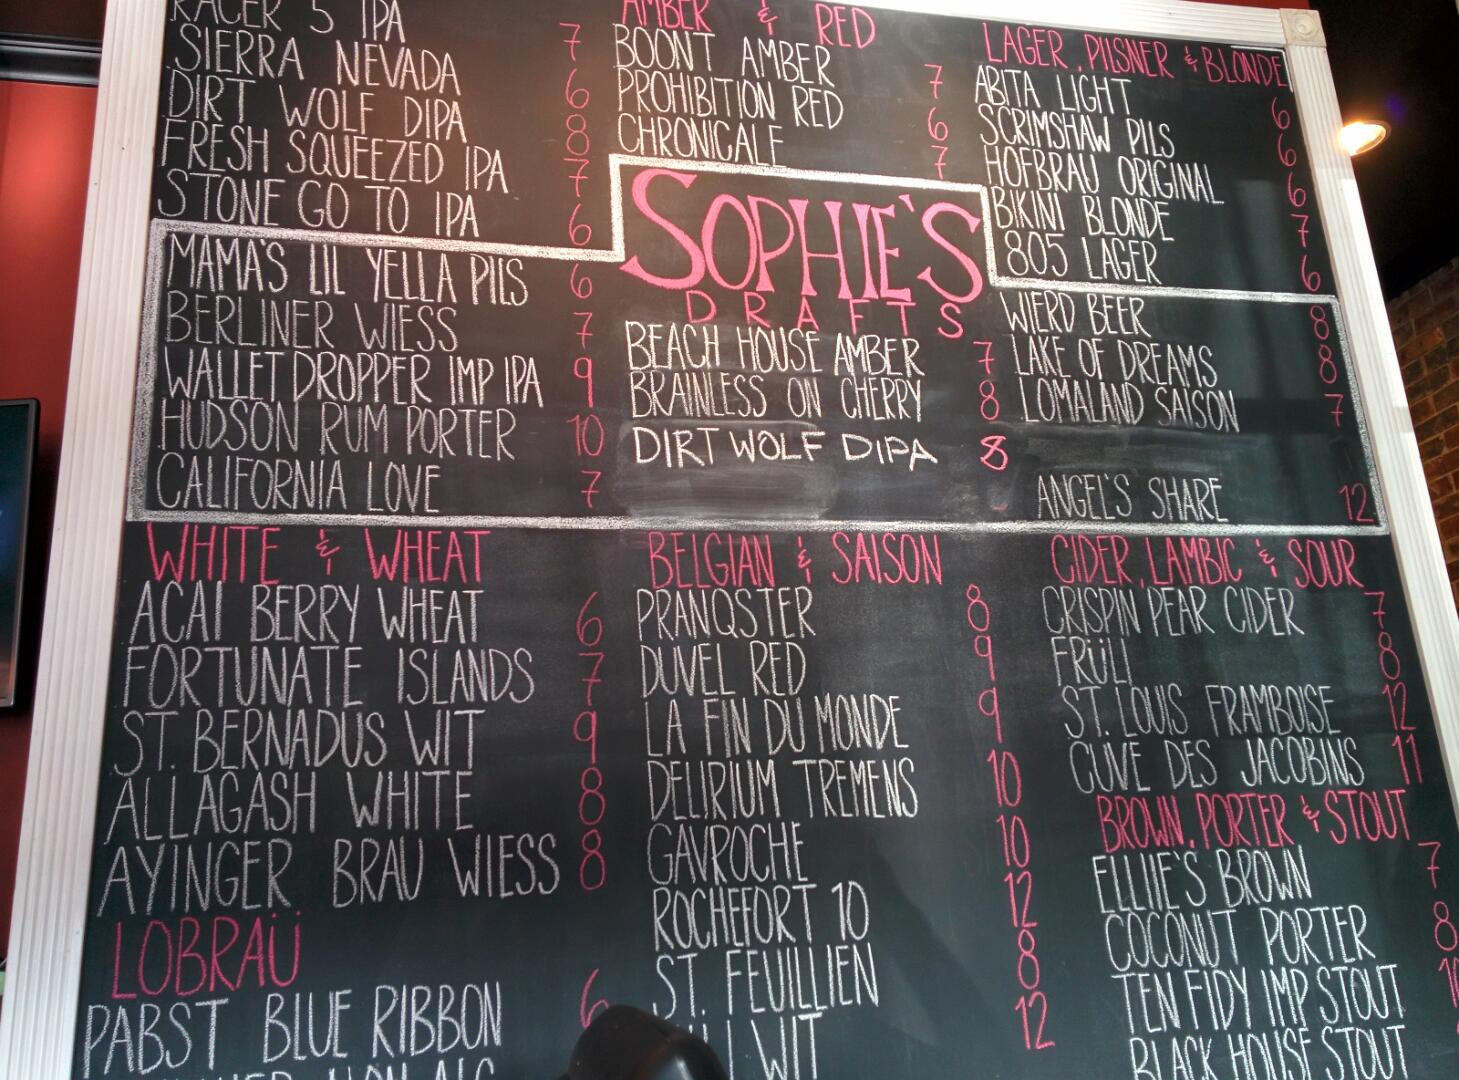 RACER 5 IPA 7
SIERRA NEVADA 6
DIRT WOLF DIPA 8
FRESH SQUEEZED IPA 7
STONE GO TO IPA 6
AMBER & RED
BOONT AMBER 7
PROHIBITION RED 6
CHRONICALE 7
LAGER, PILSNER & BLONDE
ABITA LIGHT 6
SCRIMSHAW PILS 6
HOFBRAU ORIGINAL 6
BIKINI BLONDE 7
805 LAGER 6
SOPHIE'S
DRAFTS
MAMA'S LIL YELLA PILS 6
BERLINER WIESS 7
WALLET DROPPER IMP IPA 9
HUDSON RUM PORTER 10
CALIFORNIA LOVE 7
BEACH HOUSE AMBER 7
BRAINLESS ON CHERRY 8
DIRT WOLF DIPA 8
WIERD BEER 8
LAKE OF DREAMS 8
LOMALAND SAISON 7
ANGEL'S SHARE 12
WHITE & WHEAT
ACAI BERRY WHEAT 6
FORTUNATE ISLANDS 7
ST. BERNADUS WIT 9
ALLAGASH WHITE 8
AYINGER BRAU WIESS 8
LOBRAÜ
PABST BLUE RIBBON 6
BELGIAN & SAISON
PRANQSTER 8
DUVEL RED 9
LA FIN DU MONDE 9
DELIRIUM TREMENS 10
GAVROCHE 10
ROCHEFORT 10 12
ST. FEUILLIEN 8
WIT 12
CIDER, LAMBIC & SOUR
CRISPIN PEAR CIDER 7
FRÜLI 8
ST. LOUIS FRAMBOISE 12
CUVE DES JACOBINS 11
BROWN, PORTER & STOUT
ELLIIE'S BROWN 7
COCONUT PORTER 8
TEN FIDY IMP STOUT
BLACK HOUSE STOUT